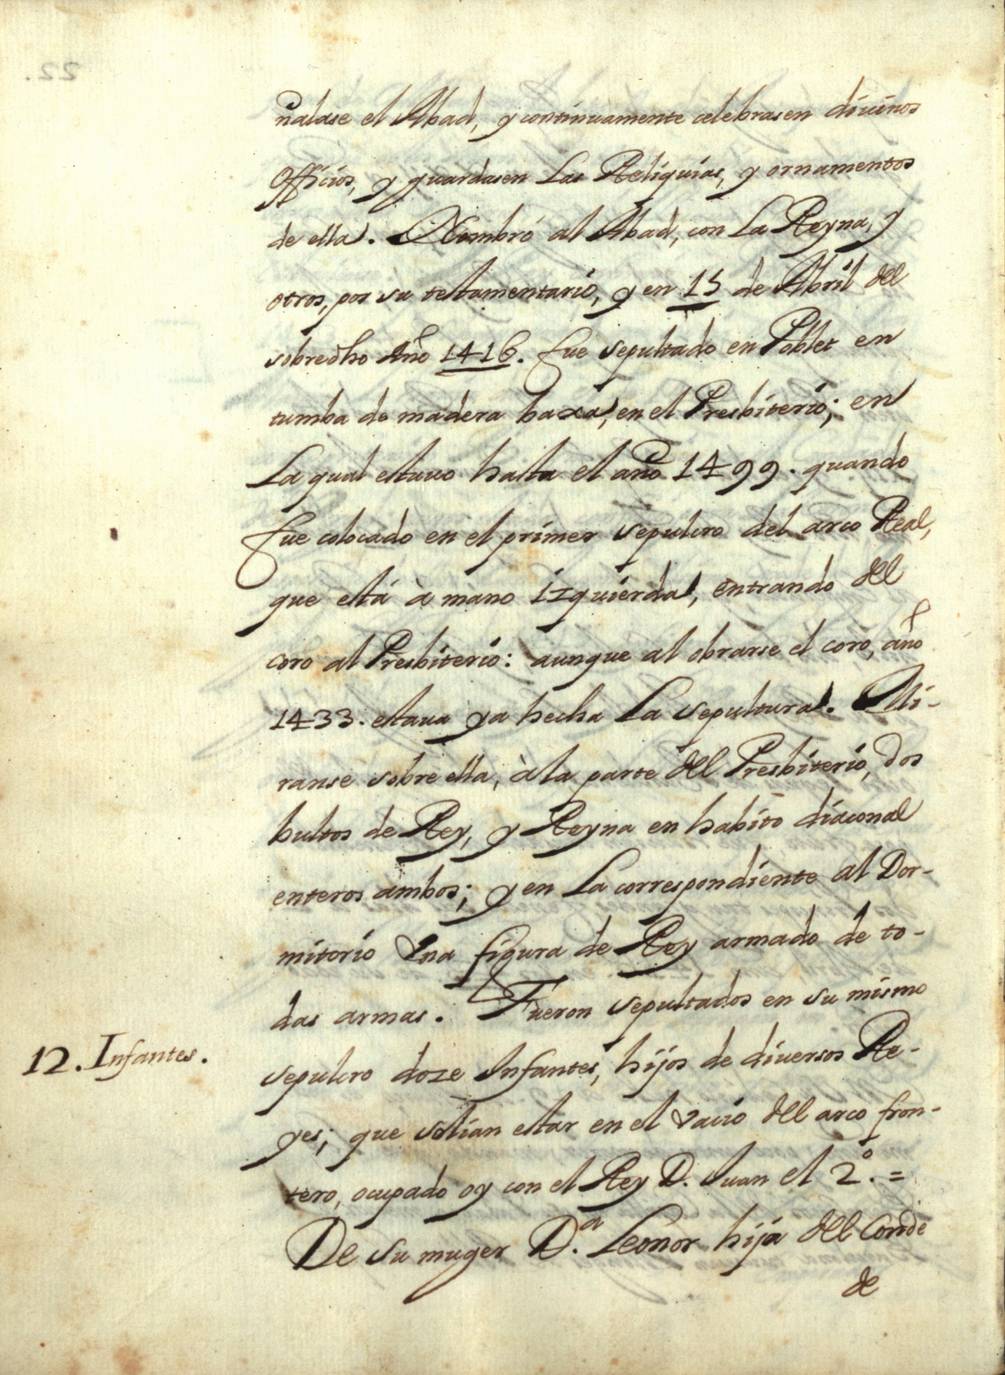 ñalase el Abad, y continuamente celebrasen divinos
Officios, y guardasen las Reliquias, y ornamentos
de ella. Nombró al Abad, con la Reyna, y
otros, por su testamentario, y en 15 de Abril del
sobredho Año 1416. fue sepultado en Poblet en
tumba de madera baxa, en el Presbiterio; en
La qual estuvo hasta el año 1499. quando
fue colocado en el primer sepulcro del arco Real,
que está à mano izquierda, entrando del
coro al Presbiterio: aunque al obrarse el coro, año
1433. estava ya hecha La sepultura. Mi-
ranse sobre ella, à la parte del Presbiterio, dos
bultos de Rey, y Reyna en habito diaconal
enteros ambos; y en La correspondiente al Dor-
mitorio Una figura de Rey armado de to-
das armas. Fueron sepultados en su mismo
12. Infantes.
sepulcro doze Infantes, hijos de diversos Re-
yes; que solian estar en el vacio del arco fron-
tero, ocupado oy con el Rey D. Juan el 2.º =
De su muger D.ª Leonor hija del Conde
de